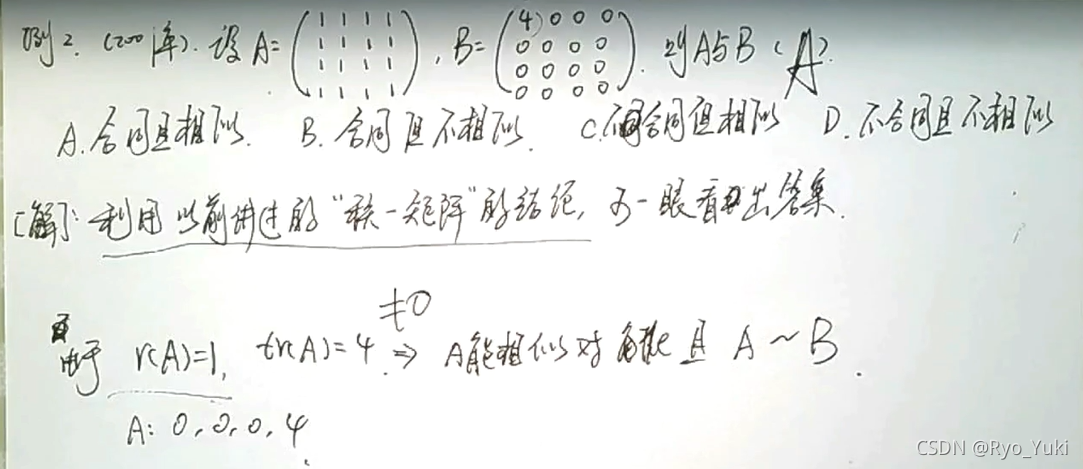 例2. (200 年). 设A=(1 1 1 1 / 1 1 1 1 / 1 1 1 1 / 1 1 1 1), B=(4 0 0 0 / 0 0 0 0 / 0 0 0 0 / 0 0 0 0). 则A与B (A).
A.合同且相似. B. 合同但不相似. C.不合同但相似 D.不合同且不相似
[解]: 利用以前讲过的“秩一矩阵”的结论, 可一眼看出答案.
≠0
由于 r(A)=1, tr(A)=4 ⇒ A能相似对角化且 A~B.
A: 0, 0, 0, 4
CSDN @Ryo_Yuki